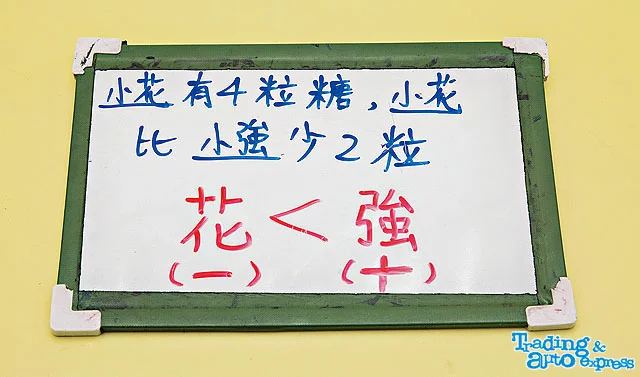 小花有4粒糖，小花
比小強少2粒
花＜強
(一) (十)
Trading &
auto express